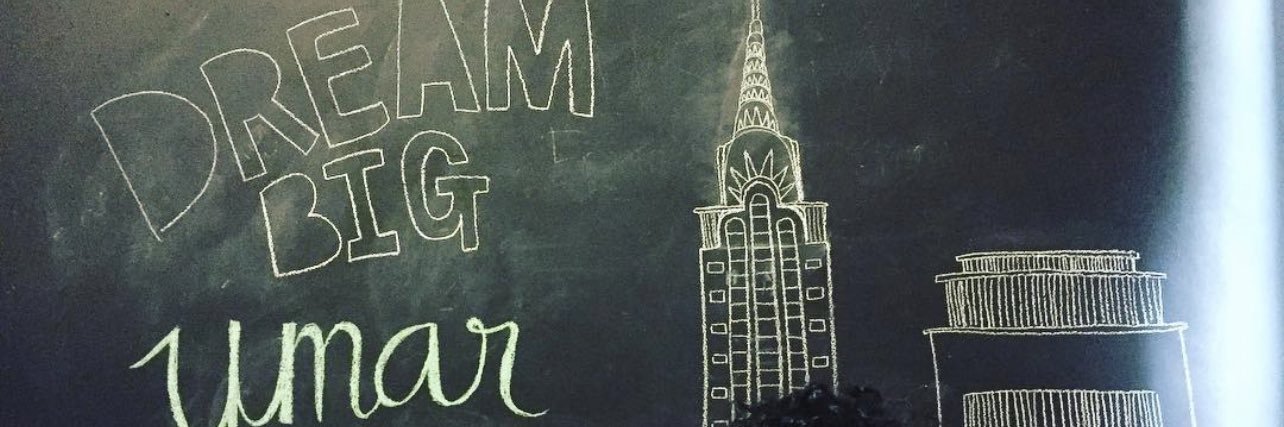 DREAM
BIG
umar